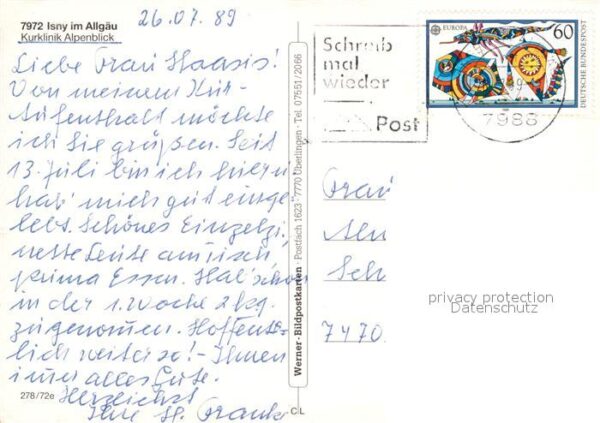 26.07.89
7972 Isny im Allgäu
Kurklinik Alpenblick
Liebe Frau Haasis!
Von meinem Kur-
Aufenthalt möchte
ich Sie grüßen. Seit
13. Juli bin ich hier u.
hab' mich gut einge
lebt. Schönes Einzelzi,
nette Leute am Tisch,
prima Essen. Hab' schon
in der 1. Woche 2 kg.
zugenommen. Hoffent-
lich weiter so! - Ihnen
immer alles Gute.
Herzlichst
Ihre H.
278/72e
Werner-Bildpostkarten · Postfach 1623 · 7770 Überlingen · Tel. 07551/2066
CL
Schreib
mal
wieder
Post
EUROPA
60
DEUTSCHE BUNDESPOST
7988
Frau
Sch
7470
privacy protection
Datenschutz